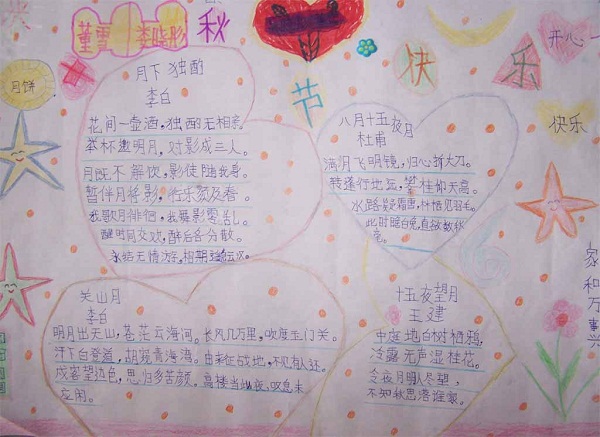 秋
节
快
乐
开心一
快乐
月饼
月下 独酌
李白
花间一壶酒，独酉无相亲。
举杯邀明月，对影成三人。
月既不解饮，影徒随我身。
暂伴月将影，行乐须及春。
我歌月徘徊，我舞影零乱。
醒时同交欢，醉后各分散。
永结无情游，相期邈云汉。
八月十五夜月
杜甫
满月飞明镜，归心折大刀。
转蓬行地远，攀桂仰天高。
水路疑霜雪，林栖见羽毛。
此时瞻白兔，直欲数秋
毫。
关山月
李白
明月出天山，苍茫云海间。长风几万里，吹度玉门关。
汉下白登道，胡窥青海湾。由来征战地，不见有人还。
戍客望边色，思归多苦颜。高楼当此夜，叹息未
应闲。
十五夜望月
王建
中庭地白树栖鸦，
冷露无声湿桂花。
今夜月明人尽望，
不知秋思落谁家。
家和万事兴